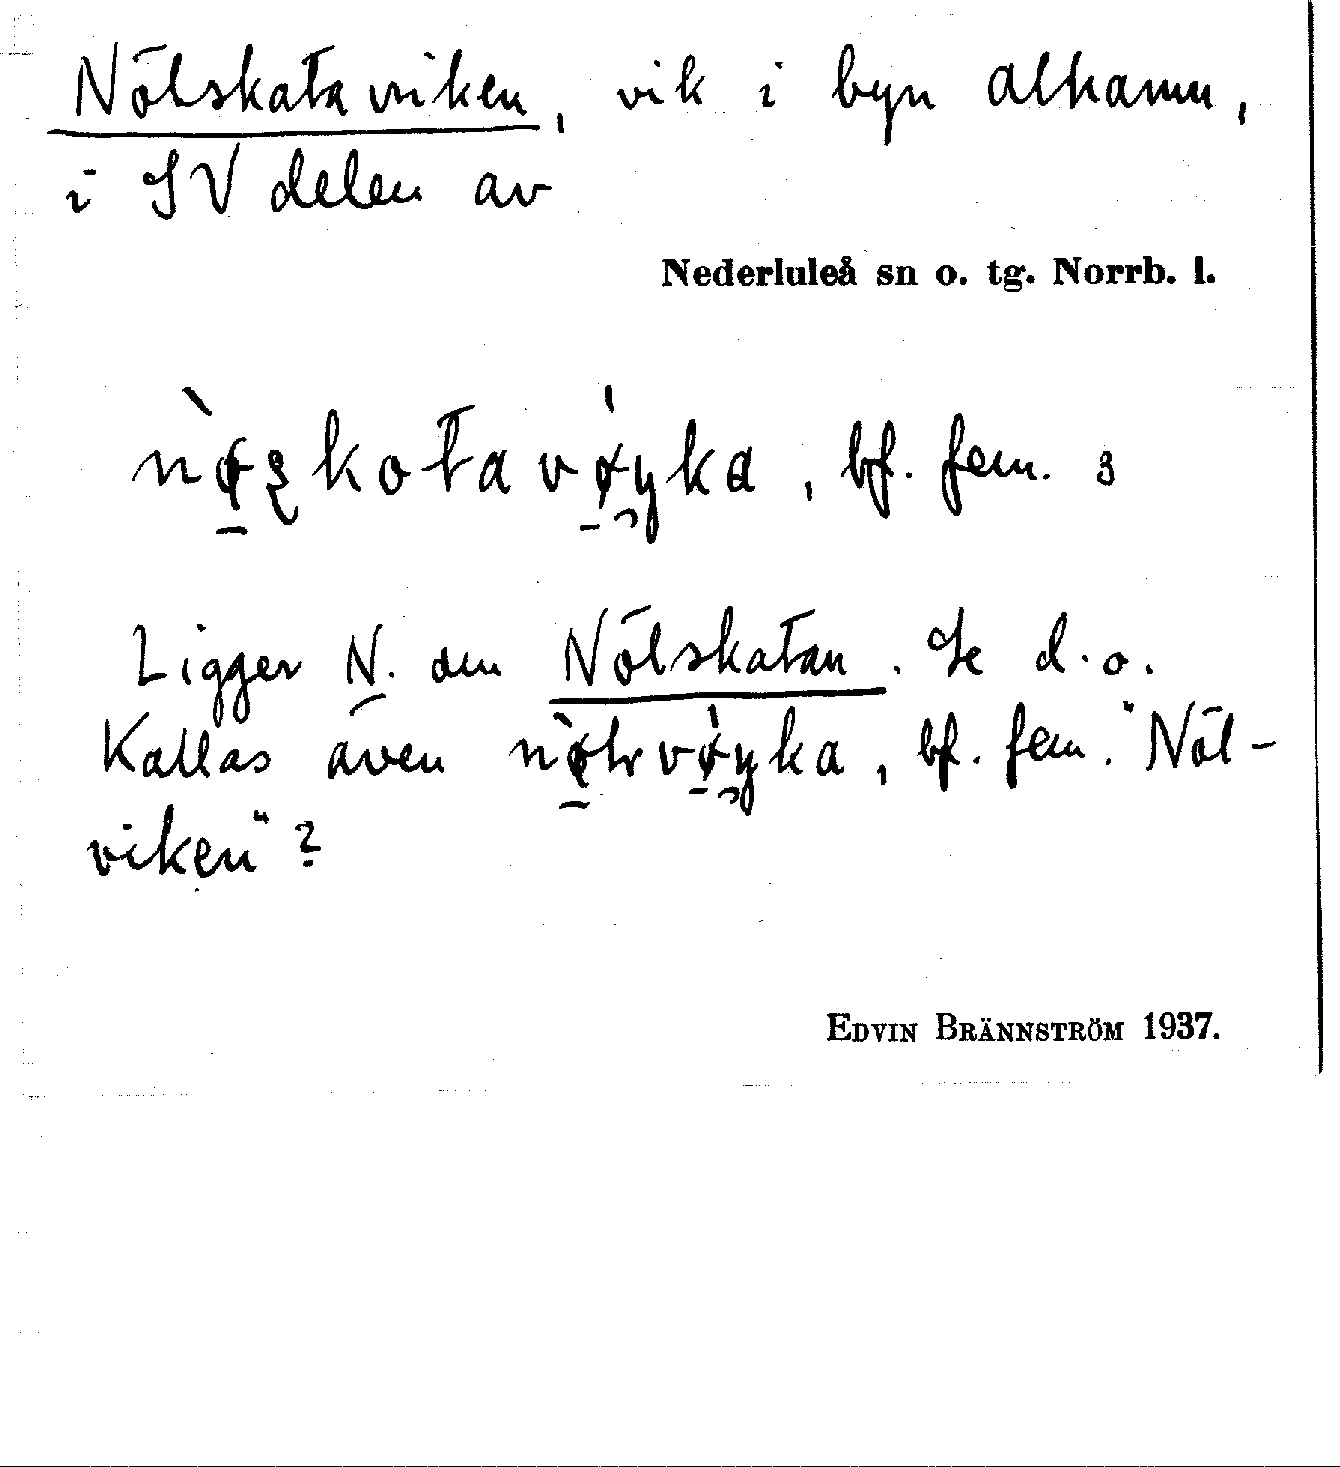 Nölskataviken, vik i byn Alhamn,
i SV delen av
Nederluleå sn o. tg. Norrb. l.
bf. fem. 3
Ligger N. om Nölskatan. Se d.o.
Kallas även bf. fem. "Nöl-
viken"?
EDVIN BRÄNNSTRÖM 1937.